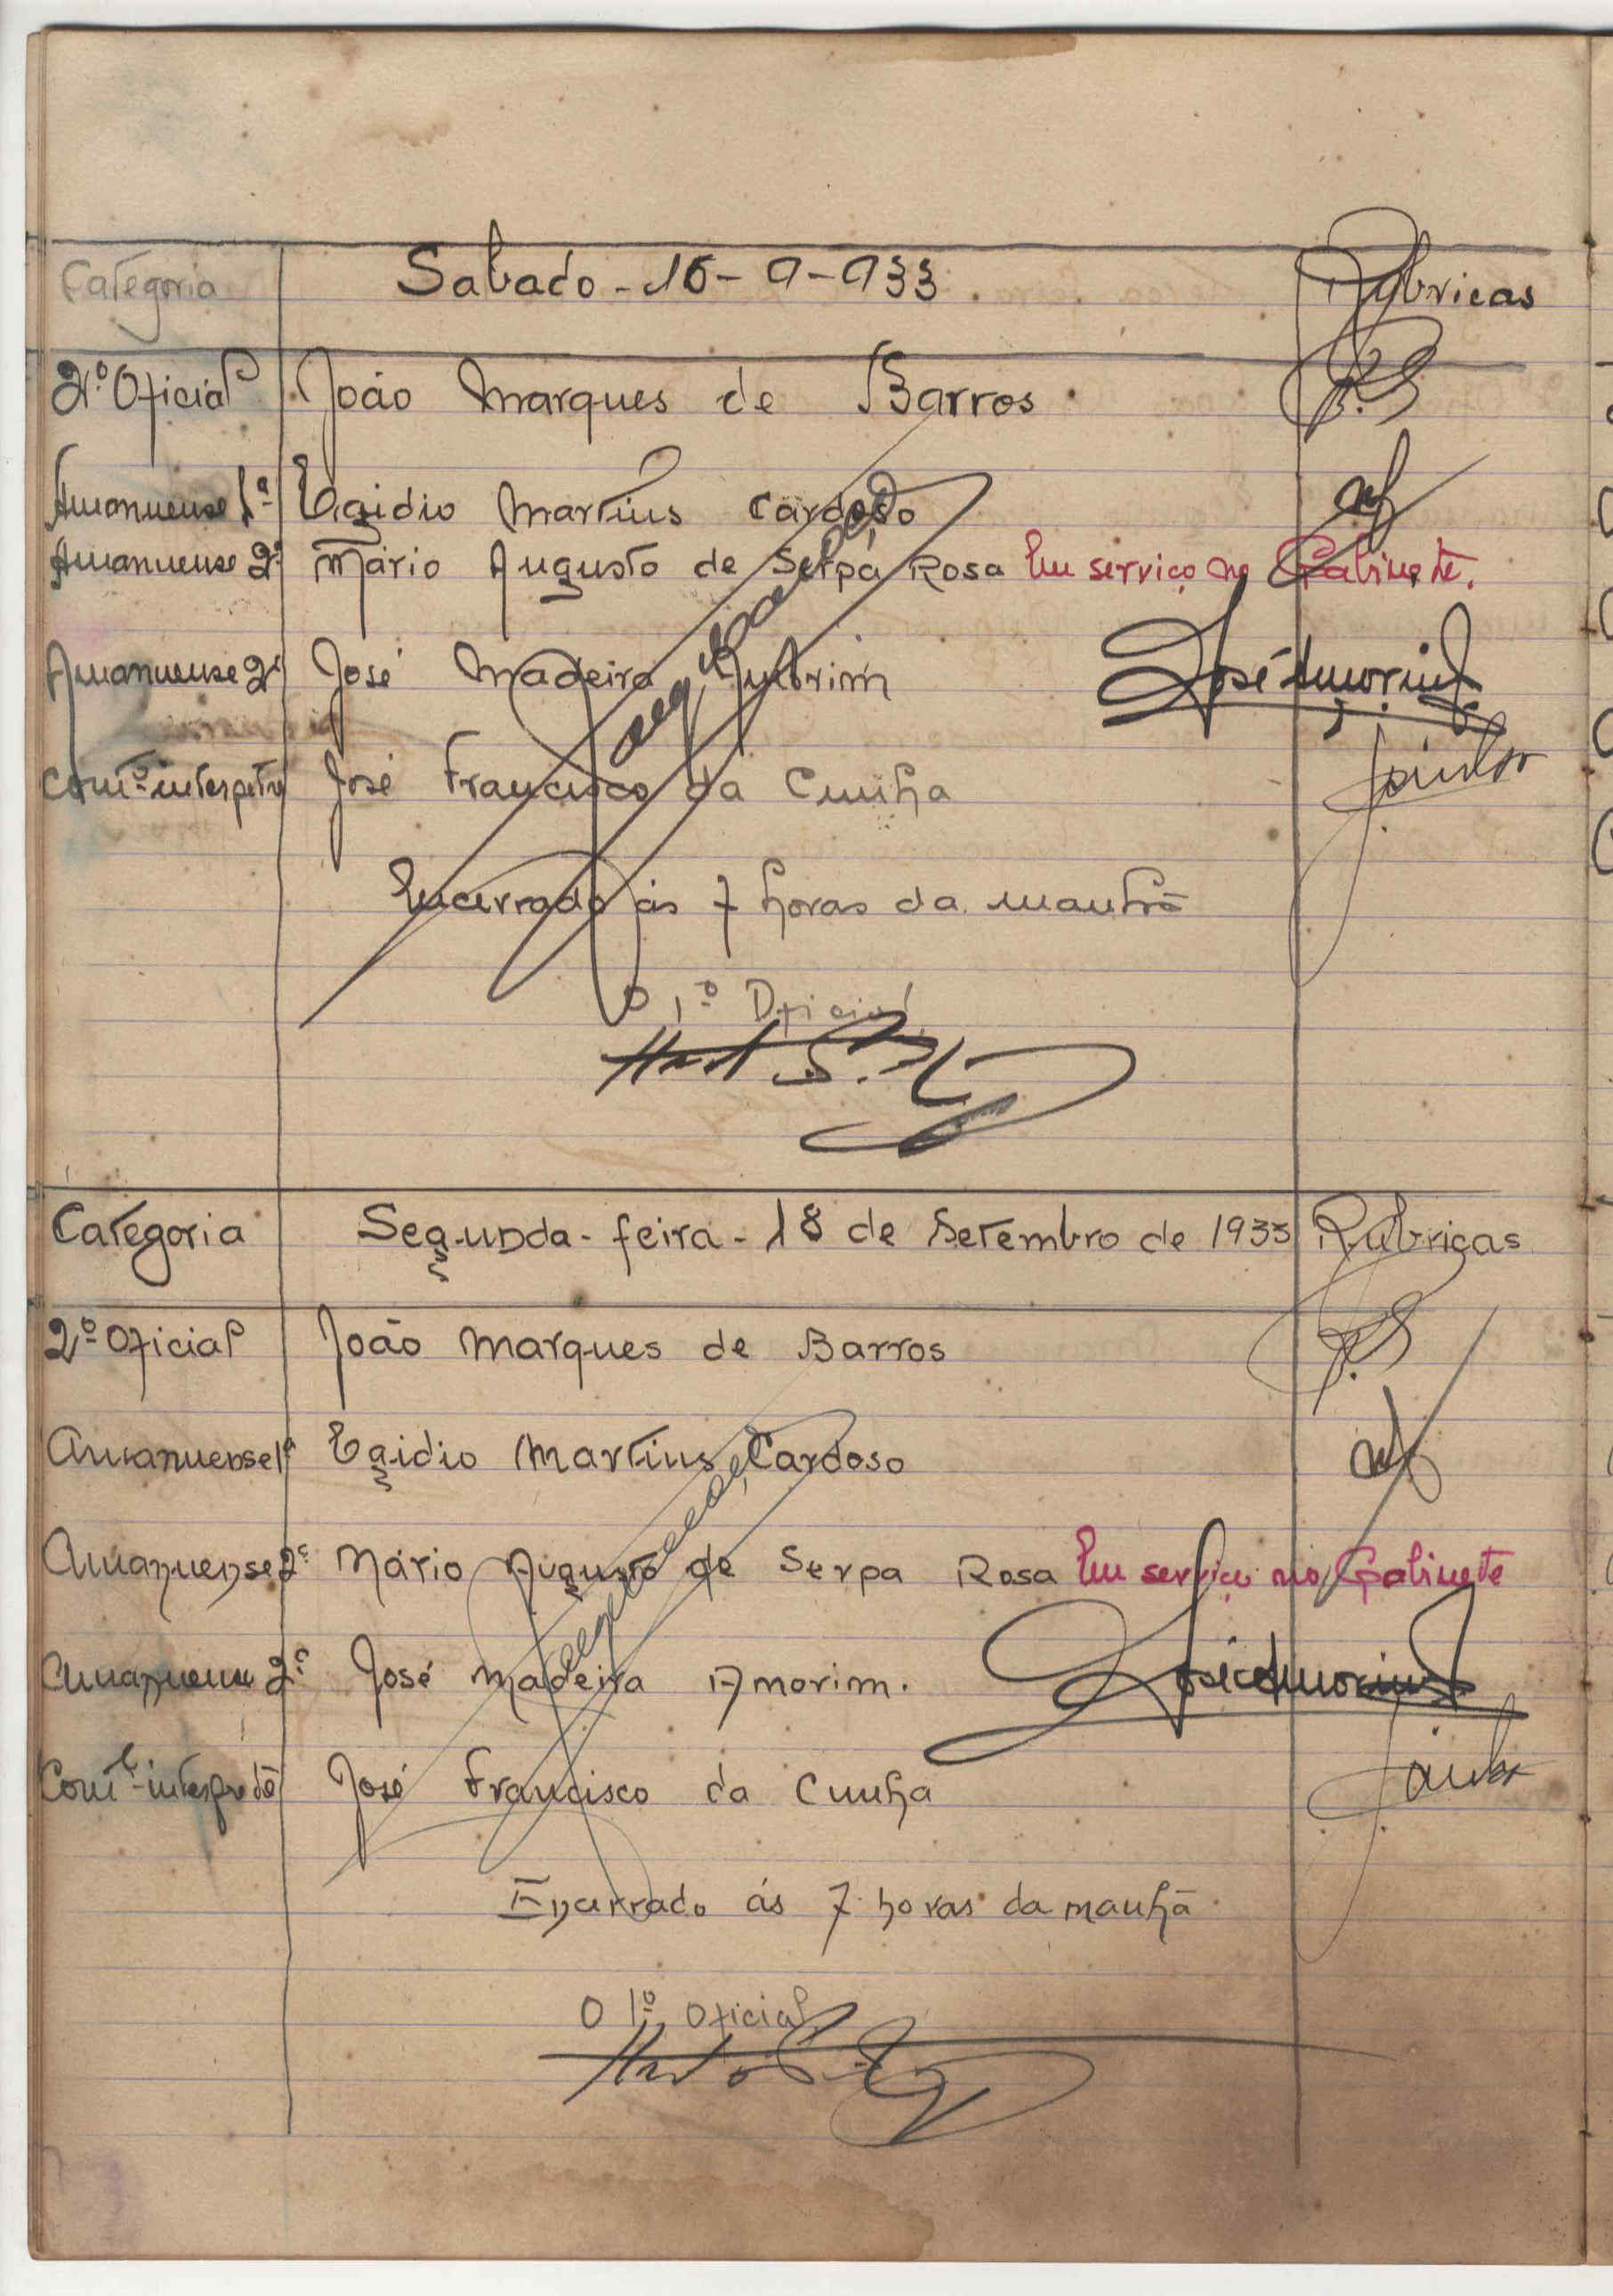 Categoria Sabado - 16 - 9 - 933 Rubricas
2.º Oficial João Marques de Barros
Amanuense 1.ª Egidio Martins Cardoso
Amanuense 2.ª Mário Augusto de Serpa Rosa Em serviço no Gabinete.
Amanuense 2.ª José Madeira Amorim José Amorim
José Francisco da Cunha
Encerrado ás 7 horas da manhã
O 1.º Oficial
Categoria Segunda-feira - 18 de Setembro de 1933 Rubricas
2.º Oficial João Marques de Barros
Amanuense 1.ª Egidio Martins Cardoso
Amanuense 2.ª Mário Augusto de Serpa Rosa Em serviço no Gabinete
Amanuense 2.ª José Madeira Amorim. José Amorim
José Francisco da Cunha
Encerrado ás 7 horas da manhã
O 1.º Oficial